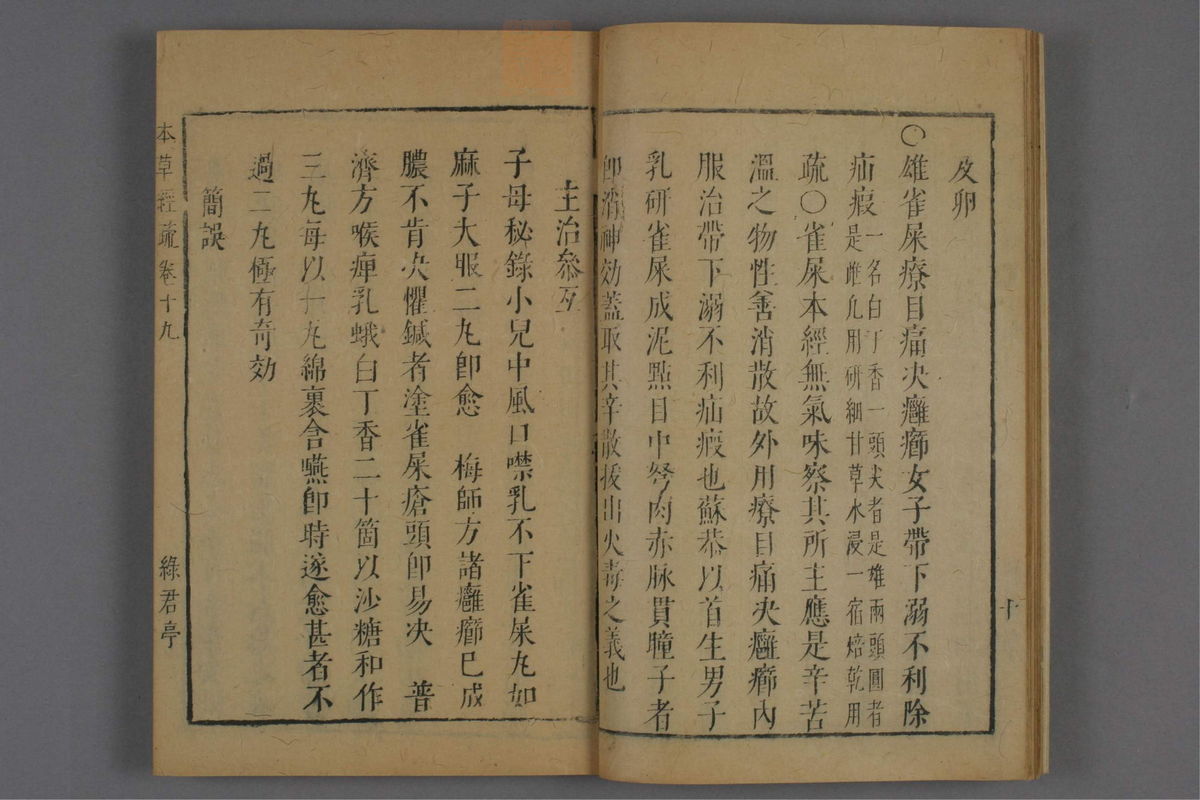 及卵
○雄雀屎療目痛决癰癤女子帶下溺不利除
疝瘕一名白丁香一頭尖者是雄兩頭圓者
是雌凡用研細甘草水浸一宿焙乾用
疏○雀屎本經無氣味察其所主應是辛苦
溫之物性善消散故外用療目痛决癰癤內
服治帶下溺不利疝瘕也蘇恭以首生男子
乳研雀屎成泥點目中弩肉赤脉貫瞳子者
卽消神効蓋取其辛散拔出火毒之義也
十
主治叅互
子母秘錄小兒中風口噤乳不下雀屎丸如
麻子大服二丸卽愈　梅師方諸癰癤已成
膿不肯决懼鍼者塗雀屎瘡頭卽易决　普
濟方喉痺乳蛾白丁香二十箇以沙糖和作
三丸每以一丸綿裹含嚥卽時遂愈甚者不
過二丸極有奇効
簡誤
本草經疏卷十九
綠君亭